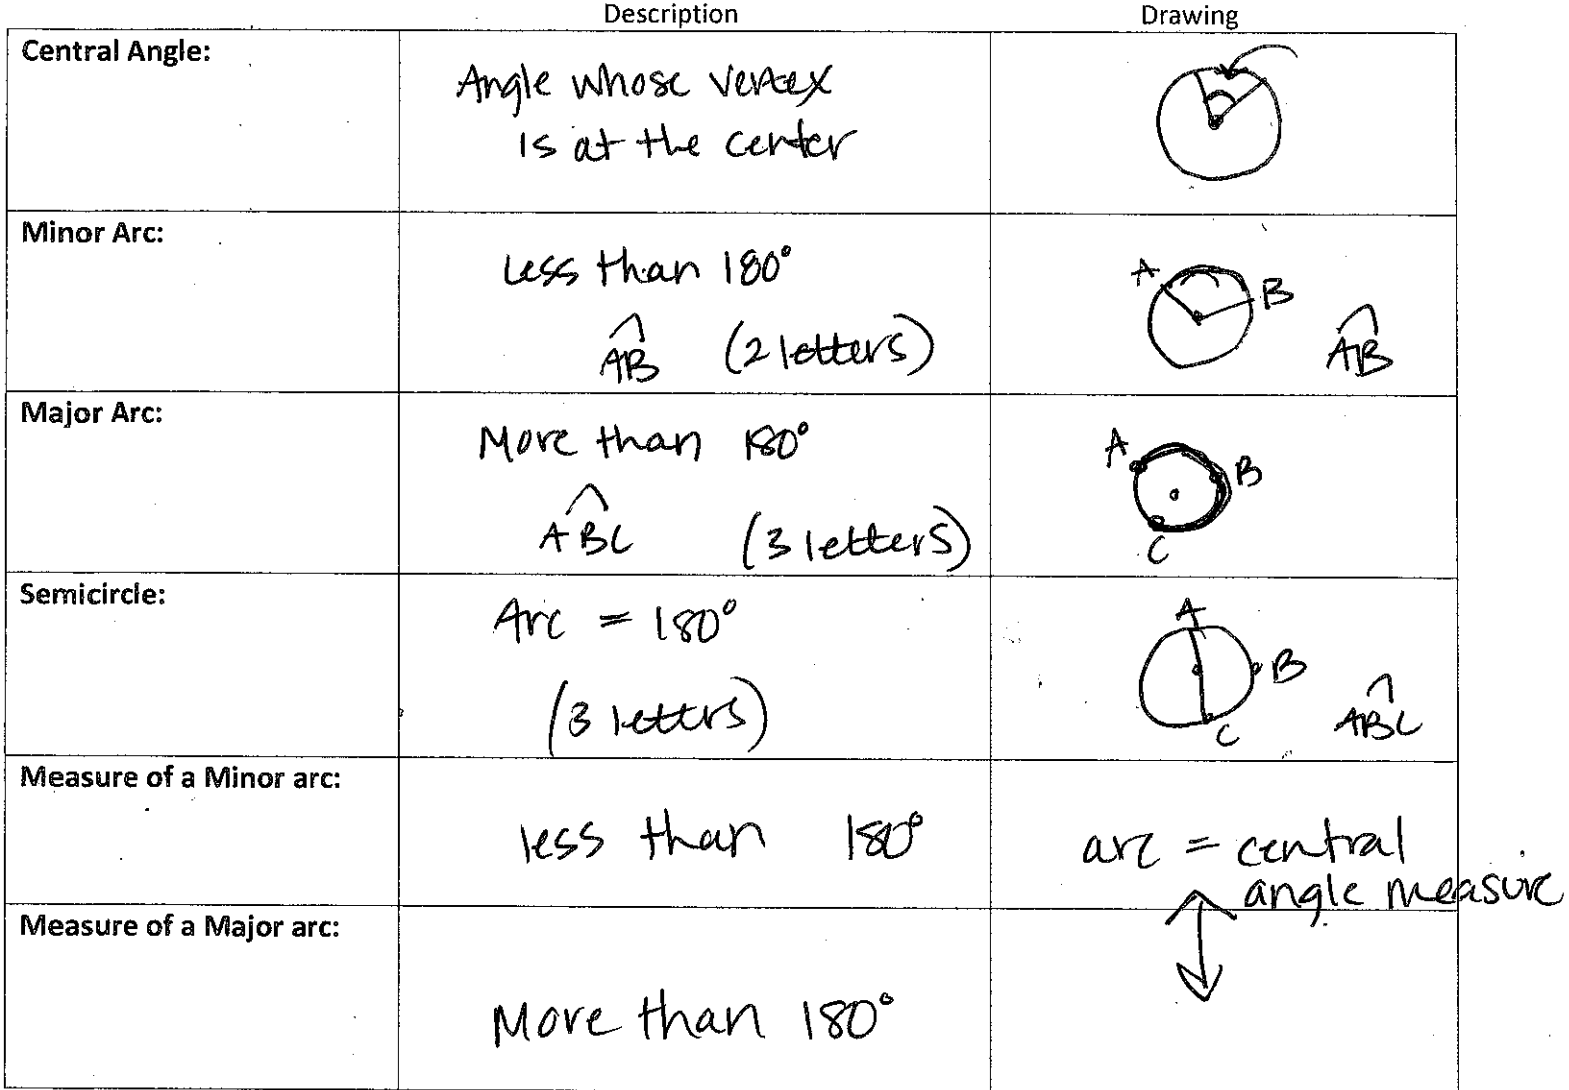 Description Drawing
Central Angle:
Angle whose vertex
is at the center
Minor Arc:
Less than 180°
A
B
AB (2 letters)
AB
Major Arc:
More than 180°
A
B
ABC (3 letters)
C
Semicircle:
Arc = 180°
A
B
(3 letters)
ABC
C
Measure of a Minor arc:
less than 180°
arc = central
angle measure
Measure of a Major arc:
More than 180°